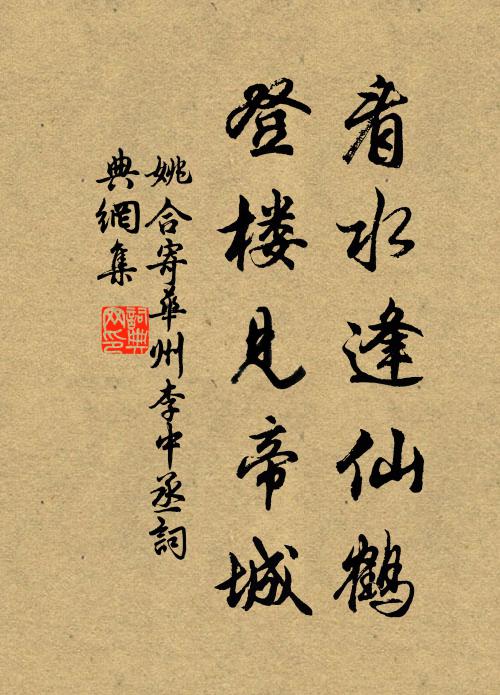 看水逢仙鹤
登楼见帝城
姚合寄华州李中丞词
典網集
詞典网印